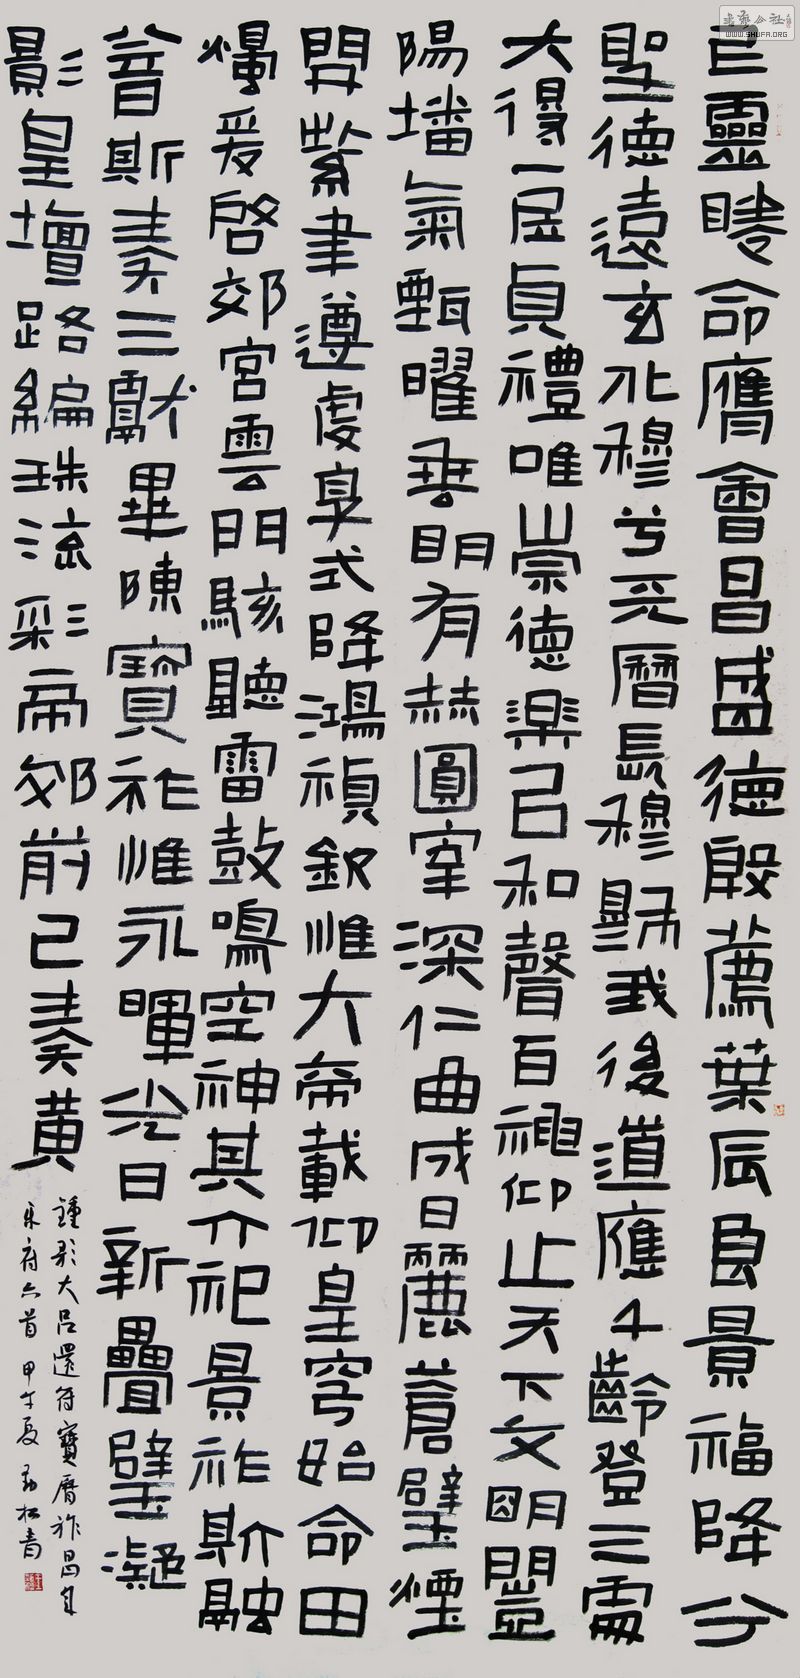 昊靈睠命膺會昌盛德殷薦葉辰良景福降兮
聖德遠玄化穆兮天曆長穆穆我後道應千齡登三處
大得一居貞禮唯崇德樂以和聲百神仰止天下文明闓
陽播氣甄曜垂明有赫圓宰深仁曲成日麗蒼璧煙
開紫聿遵虔享式降鴻禎欽惟大帝載仰皇穹始命田
燭爰啓郊宮雲門駭聽雷鼓鳴空神其介祀景祚斯融
八音斯奏三獻畢陳寶祚惟永暉光日新疊璧凝
影皇壇路編珠流彩帝郊前已奏黃
鍾歌大呂還符寶曆祚昌自
樂府六首 甲午夏 松青
WWW.SHUFA.ORG